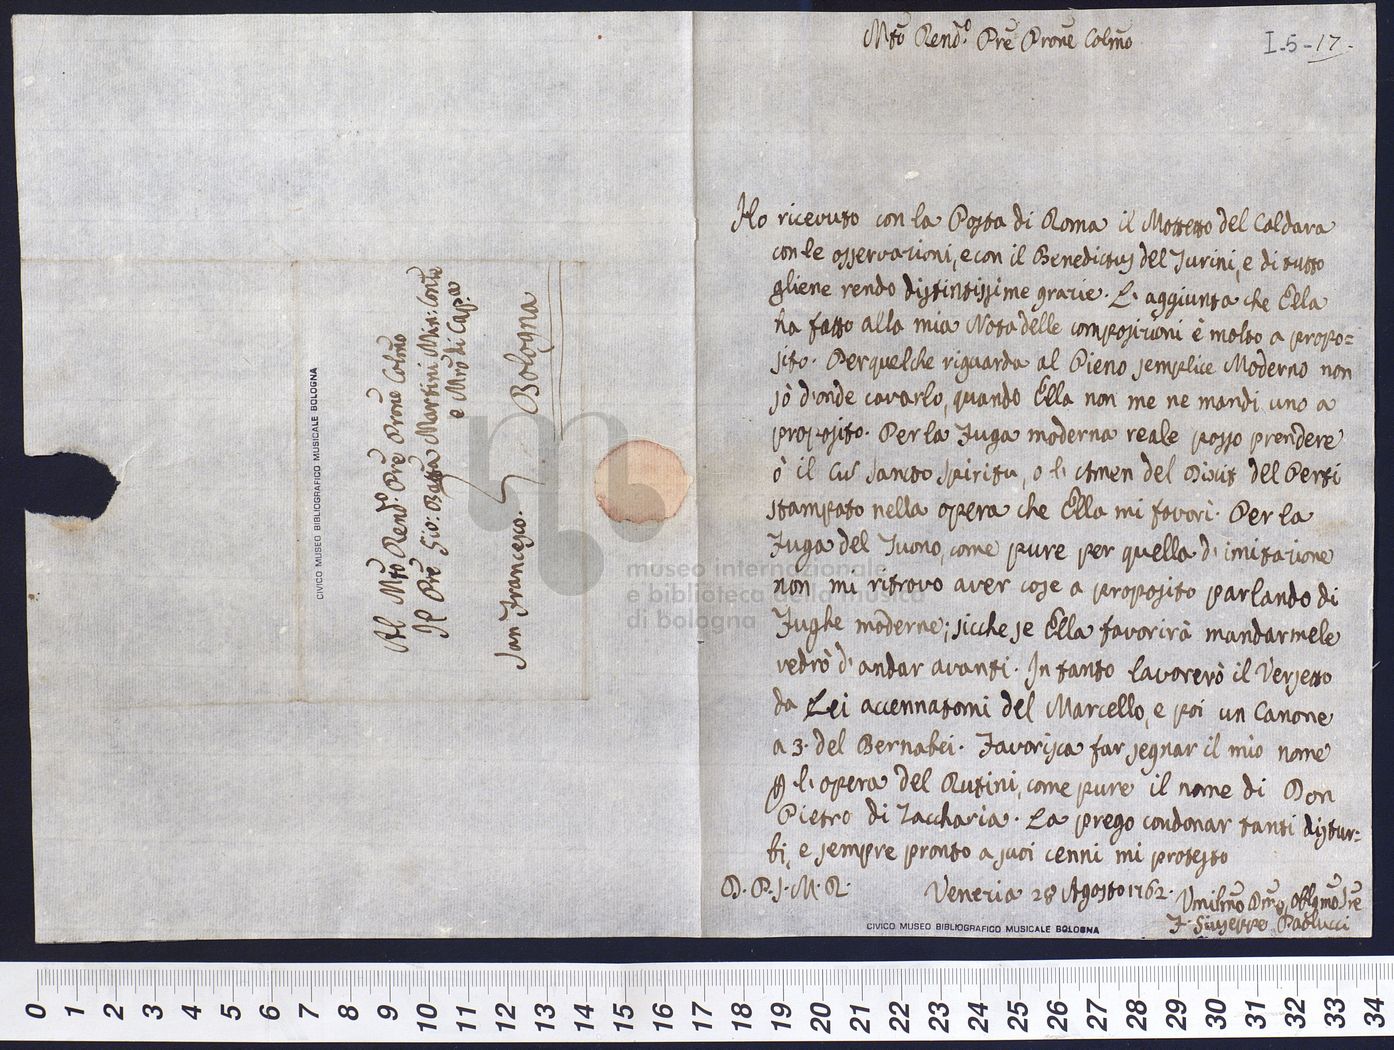 Mto Rendo. Pre Prone Colmo
I-5-17.
Ho ricevuto con la Posta di Roma il Mottetto del Caldara
con le osservazioni, e con il Benedictus del Turini, e di tutto
gliene rendo distintissime grazie. L'aggiunta che Ella
ha fatto alla mia Nota delle composizioni è molto a propo=
sito. Per quel che riguarda al Pieno semplice Moderno non
sò d'onde cavarlo, quando Ella non me ne mandi uno a
proposito. Per la Fuga moderna reale posso prendere
ò il Cum Sancto Spiritu, o l'Amen del Dixit del Perti
stampato nella opera che Ella mi favorì. Per la
Fuga del Tuono, come pure per quella d'imitazione
non mi ritrovo aver cose a proposito parlando di
Fughe moderne; sicche se Ella favorirà mandarmele
vedrò d'andar avanti. In tanto lavorerò il Versetto
da Lei accennatomi del Marcello, e poi un Canone
a 3. del Bernabei. Favorisca far segnar il mio nome
l'opera del Rutini, come pure il nome di Don
Pietro di Zaccharia. La prego condonar tanti distur=
bi, e sempre pronto a suoi cenni mi protesto
D. P. S. M. R.
Venezia 28 Agosto 1762.
Umilmo Dmo, Obblgmo Sre
F. Giuseppe Paolucci
CIVICO MUSEO BIBLIOGRAFICO MUSICALE BOLOGNA
Al Mto Rendo. Pre Prone Colmo
Il Pre Gio: Batta Martini Min: Conte
e Mro di Capa
San Francesco. Bologna
CIVICO MUSEO BIBLIOGRAFICO MUSICALE BOLOGNA
museo internazionale
e biblioteca della musica
di bologna
0 1 2 3 4 5 6 7 8 9 10 11 12 13 14 15 16 17 18 19 20 21 22 23 24 25 26 27 28 29 30 31 32 33 34